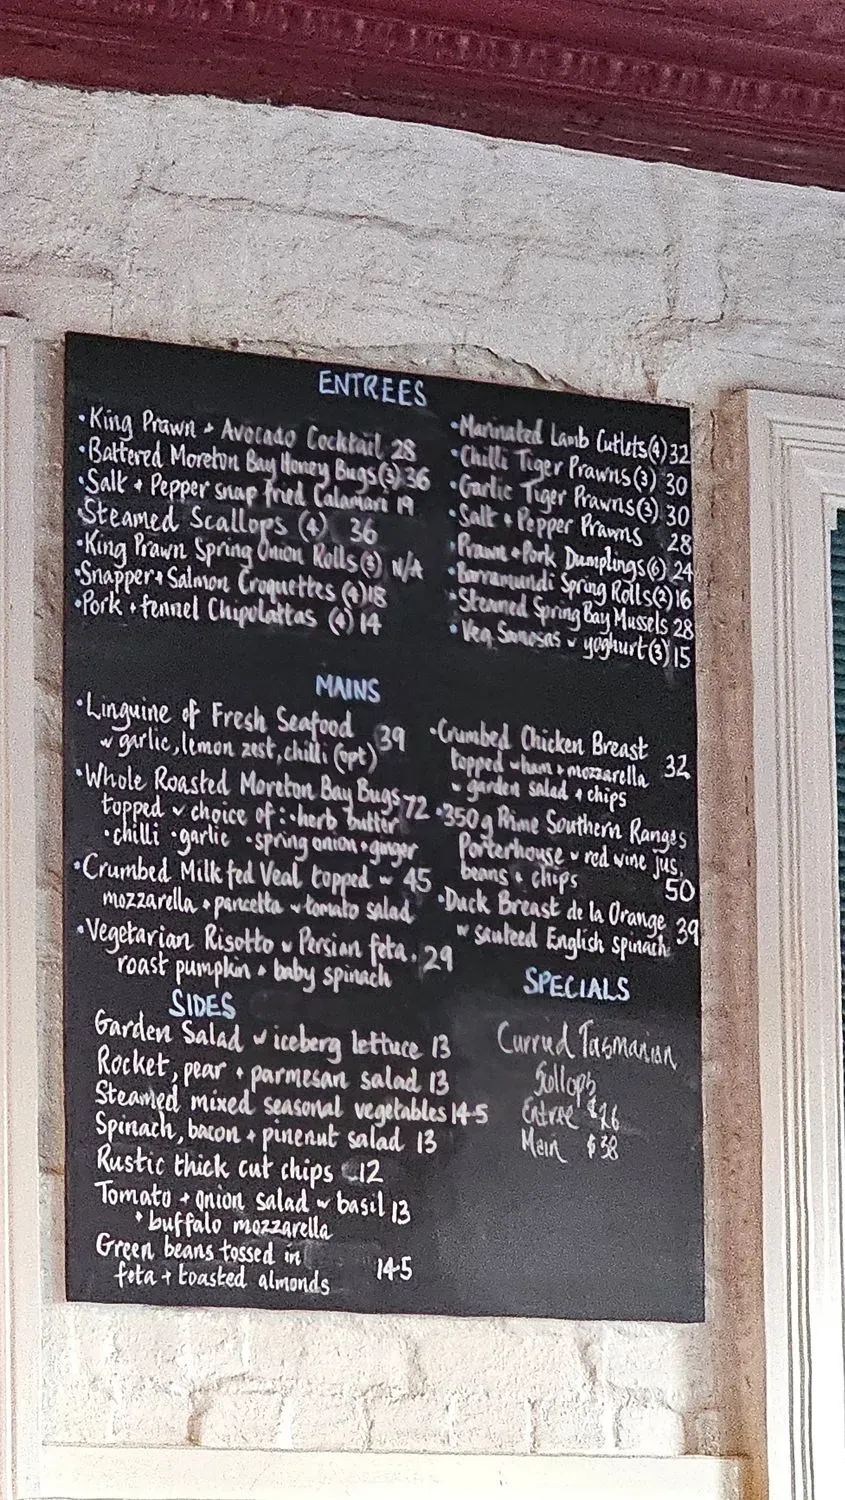 ENTREES
• King Prawn + Avocado Cocktail 28
• Battered Moreton Bay Honey Bugs (3) 36
• Salt + Pepper snap fried Calamari 19
• Steamed Scallops (4) 36
• King Prawn Spring Onion Rolls (3) N/A
• Snapper + Salmon Croquettes (4) 18
• Pork + fennel Chipolattas (4) 14
• Marinated Lamb Cutlets (4) 32
• Chilli Tiger Prawns (3) 30
• Garlic Tiger Prawns (3) 30
• Salt + Pepper Prawns 28
• Prawn + Pork Dumplings (6) 24
• Barramundi Spring Rolls (2) 16
• Steamed Spring Bay Mussels 28
• Veg Samosas w yoghurt (3) 15
MAINS
• Linguine of Fresh Seafood 39
w garlic, lemon zest, chilli (opt)
• Whole Roasted Moreton Bay Bugs 72
topped w choice of: • herb butter
• chilli • garlic • spring onion + ginger
• Crumbed Milk fed Veal topped w 45
mozzarella + pancetta w tomato salad
• Vegetarian Risotto w Persian feta, 29
roast pumpkin + baby spinach
• Crumbed Chicken Breast
topped w ham + mozzarella 32
w garden salad + chips
• 350g Prime Southern Ranges
Porterhouse w red wine jus,
beans + chips 50
• Duck Breast de la Orange 39
w sauteed English spinach
SIDES
Garden Salad w iceberg lettuce 13
Rocket, pear + parmesan salad 13
Steamed mixed seasonal vegetables 14.5
Spinach, bacon + pinenut salad 13
Rustic thick cut chips 12
Tomato + onion salad w basil 13
+ buffalo mozzarella
Green beans tossed in
feta + toasted almonds 14.5
SPECIALS
Curried Tasmanian
Scallops
Entree $26
Main $38